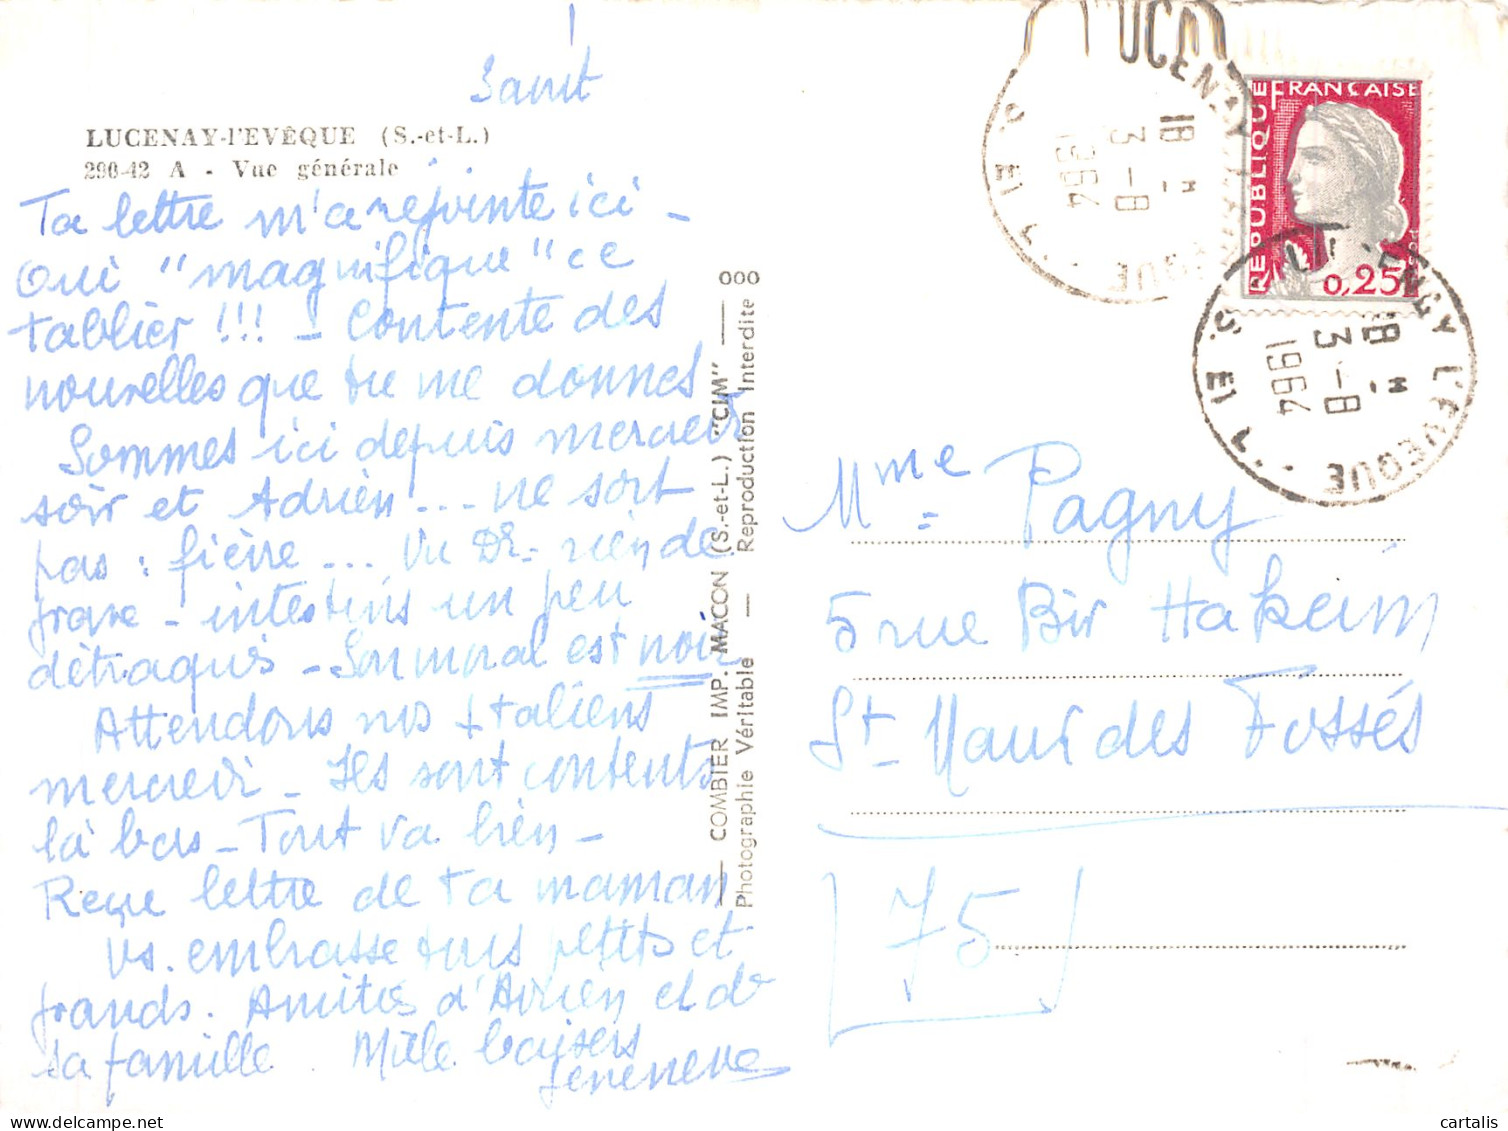 LUCENAY-l'EVÊQUE (S.-et-L.)
290-42 A - Vue générale
Ta lettre m'a rejointe ici -
Oui "magnifique" ce
tablier !!! - Contente des
nouvelles que tu me donnes
Sommes ici depuis mercredi
soir et Adrien... ne sort
pas : fièvre ... Vu Dr - rien de
grave - intestins un peu
détraqués - Son moral est noir
Attendons nos Italiens
mercredi - Ils sont contents
là bas - Tout va bien -
Reçue lettre de ta maman
Vs. embrasse tous petits et
grands. Amitiés d'Adrien et de
sa famille Mille baisers
Geneviève
— COMBIER IMP. MACON (S.-et-L.) "CIM" — OOO
Photographie Véritable — Reproduction Interdite
LUCENAY L'EVEQUE
18 H
3 - 8
1964
S. ET L.
REPUBLIQUE FRANÇAISE
0,25
POSTES
LUCENAY L'EVEQUE
18 H
3 - 8
1964
S. ET L.
Mme Pagny
5 rue Bir Hakeim
St Maur des Fossés
75